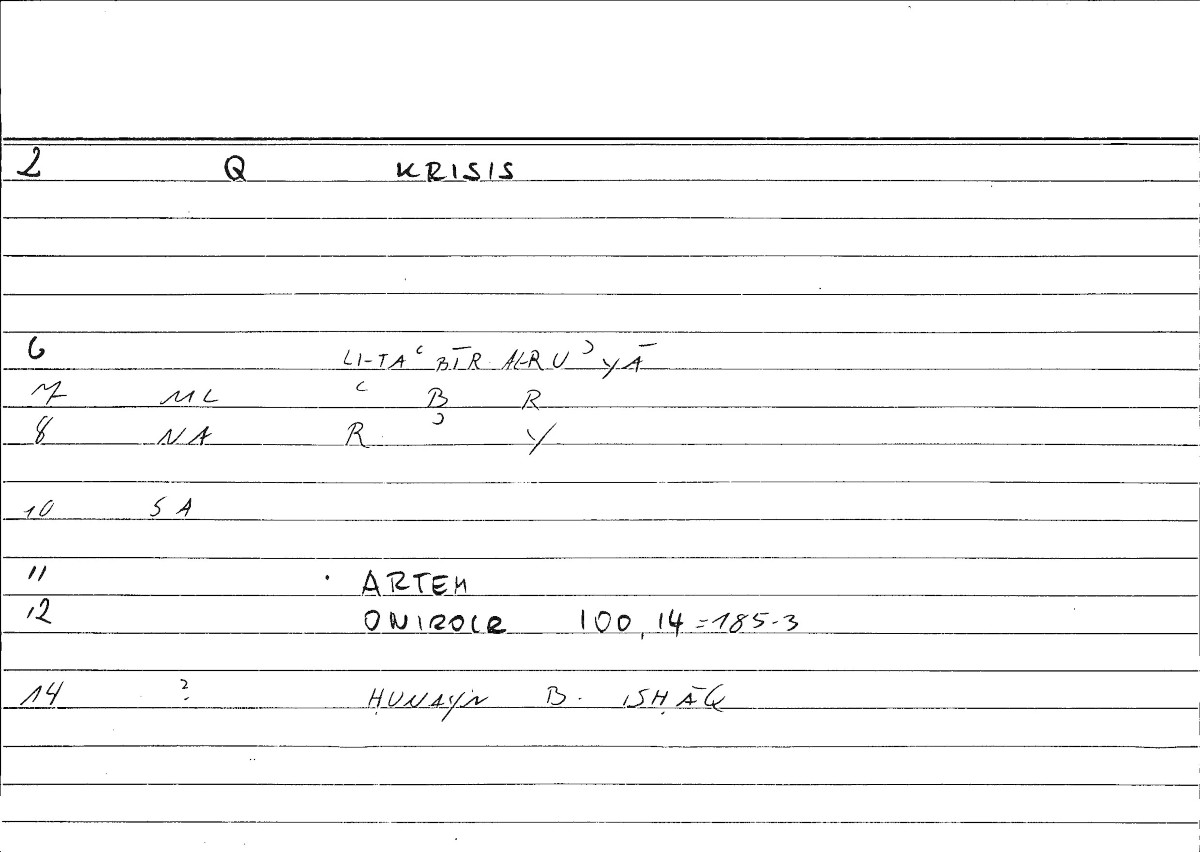 2 Q KRISIS
6 LI-TAʿBĪR AL-RUʾYĀ
7 ML ʿ B R
8 NA R ʾ Y
10 SA
11 · ARTEM
12 ONIROCR 100,14=185-3
14 ? ḤUNAYN B. ISḤĀQ